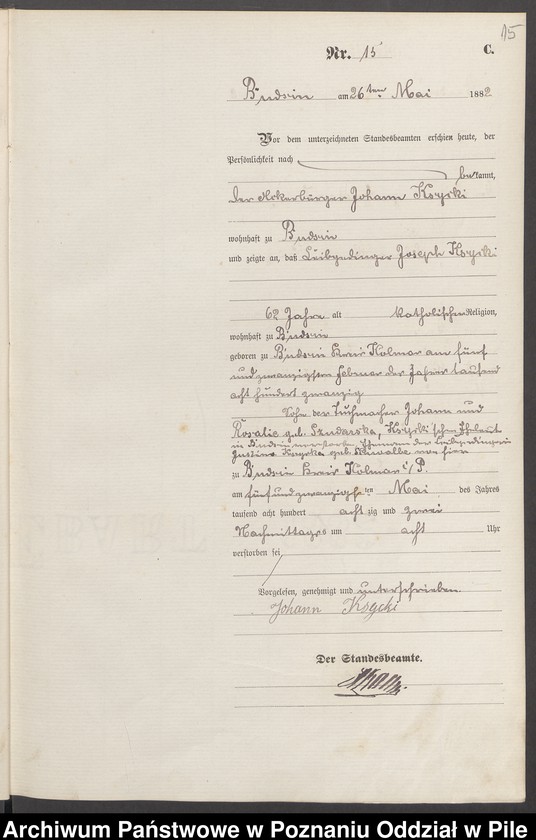 15
Nr. 15
C.
Budsin am 26ten Mai 1882
Vor dem unterzeichneten Standesbeamten erschien heute, der
Persönlichkeit nach
bekannt,
der Ackerbürger Johann Ksycki
wohnhaft zu Budsin
und zeigte an, daß Leibgedinger Joseph Ksycki
62 Jahre alt katholischen Religion,
wohnhaft zu Budsin
geboren zu Budsin Kreis Kolmar am fünf
und zwanzigsten Februar des Jahres tausend
acht hundert zwanzig
Sohn der Tuchmacher Johann und
Rosalie geb. Ksycki'schen Eheleute
in Budsin verstorben, Ehemann der Leibgedingerin
Justine Ksycka geb. von hier
zu Budsin Kreis Kolmar i/P.
am fünfundzwanzigsten Mai des Jahres
tausend acht hundert achtzig und zwei
Nachmittags um acht Uhr
verstorben sei
Vorgelesen, genehmigt und unterschrieben.
Johann Ksycki
Der Standesbeamte.
Archiwum Państwowe w Poznaniu Oddział w Pile